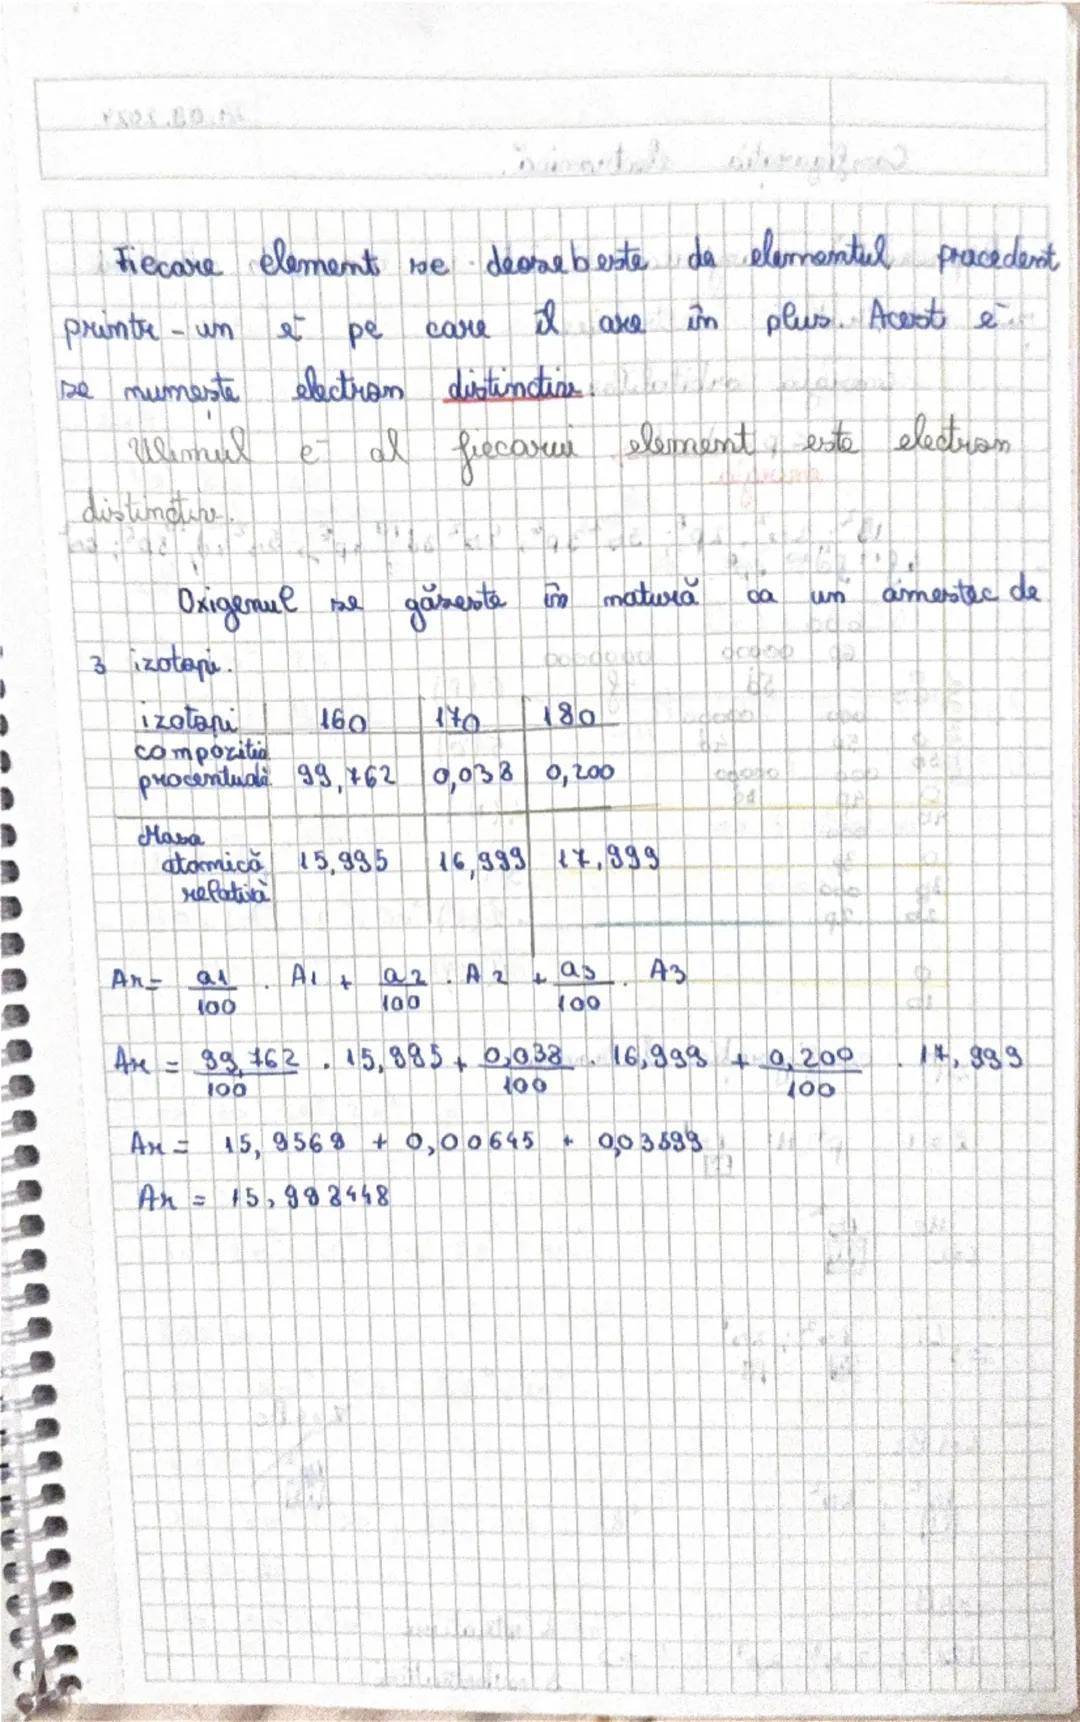 Fiecare element se deosebeste de elementul precedent
printr-un e⁻ pe care îl are în plus. Acest e⁻
se numeste electron distinctiv.
Ulimul e⁻ al fiecarui element, este electron
distinctiv.
Oxigenul se găseste în natură ca un amestec de
3 izotopi.
izotopi 16O 17O 18O
compozitia
procentuală 99,762 0,038 0,200
Masa
atomică 15,995 16,999 17,999
relativă
Ar= a1/100 . A1 + a2/100 . A2 + a3/100 . A3
Ar = 99,762/100 . 15,995 + 0,038/100 . 16,999 + 0,200/100 . 17,999
Ar = 15,9568 + 0,00645 + 0,03599
Ar =